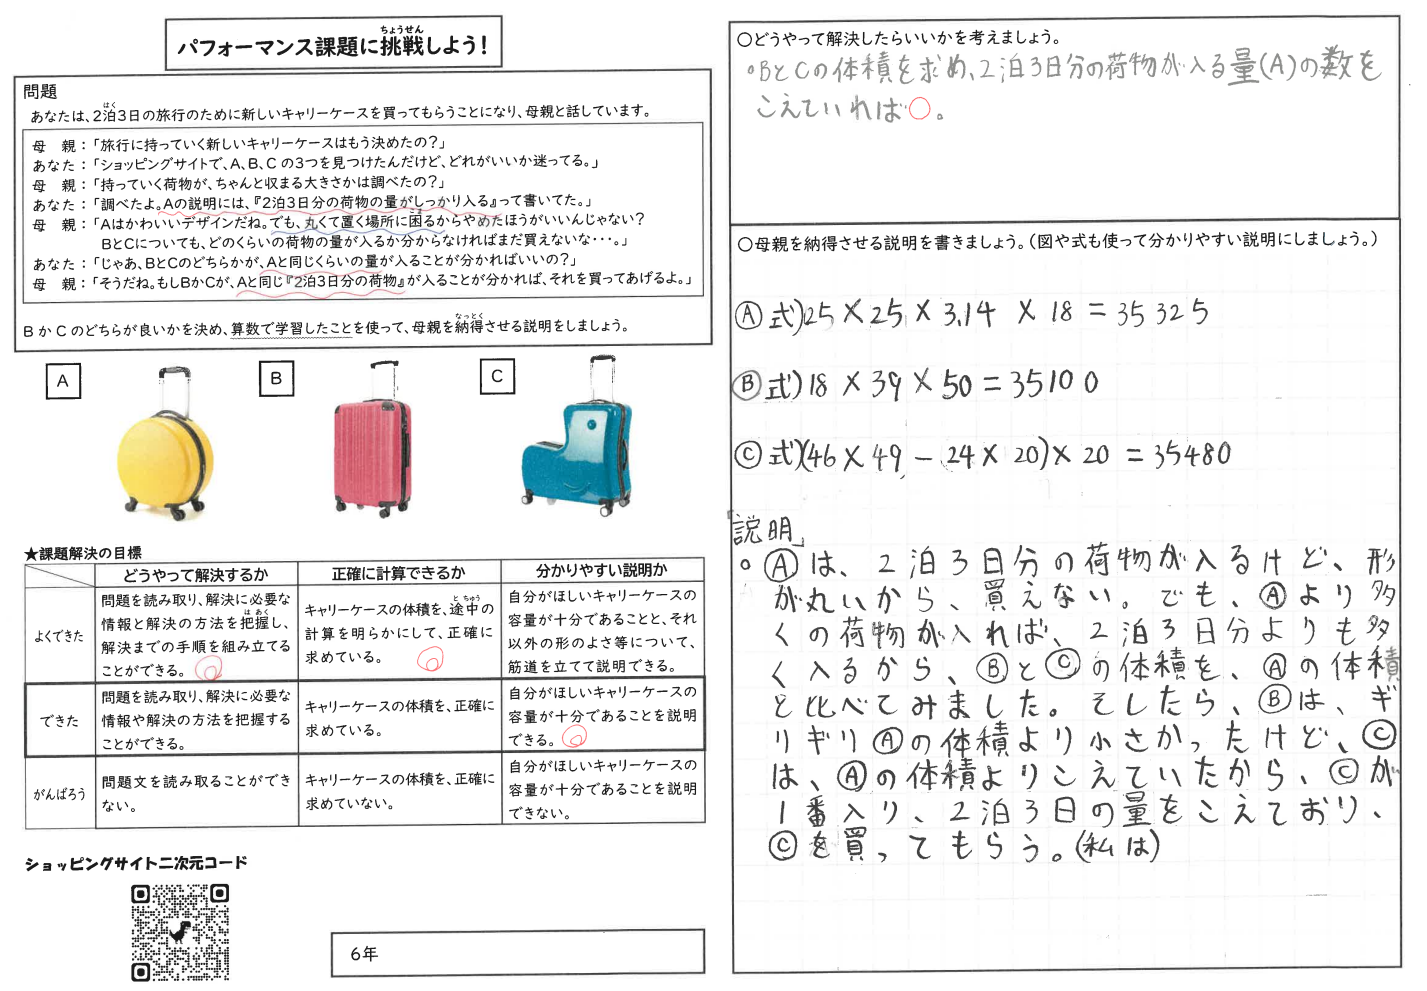 パフォーマンス課題に挑戦しよう！
ちょうせん
問題
あなたは、2泊3日の旅行のために新しいキャリーケースを買ってもらうことになり、母親と話しています。
はく
母　親：「旅行に持っていく新しいキャリーケースはもう決めたの？」
あなた：「ショッピングサイトで、A、B、Cの3つを見つけたんだけど、どれがいいか迷ってる。」
母　親：「持っていく荷物が、ちゃんと収まる大きさかは調べたの？」
あなた：「調べたよ。Aの説明には、『2泊3日分の荷物の量がしっかり入る』って書いてた。」
母　親：「Aはかわいいデザインだね。でも、丸くて置く場所に困るからやめたほうがいいんじゃない？
BとCについても、どのくらいの荷物の量が入るか分からなければまだ買えないな・・・。」
あなた：「じゃあ、BとCのどちらかが、Aと同じくらいの量が入ることが分かればいいの？」
母　親：「そうだね。もしBかCが、Aと同じ『2泊3日分の荷物』が入ることが分かれば、それを買ってあげるよ。」
BかCのどちらが良いかを決め、算数で学習したことを使って、母親を納得させる説明をしましょう。
なっとく
A
B
C
★課題解決の目標
どうやって解決するか　正確に計算できるか　分かりやすい説明か
よくできた
問題を読み取り、解決に必要な
情報と解決の方法を把握し、
はあく
解決までの手順を組み立てる
ことができる。
キャリーケースの体積を、途中の
とちゅう
計算を明らかにして、正確に
求めている。
自分がほしいキャリーケースの
容量が十分であることと、それ
以外の形のよさ等について、
筋道を立てて説明できる。
できた
問題を読み取り、解決に必要な
情報や解決の方法を把握する
ことができる。
キャリーケースの体積を、正確に
求めている。
自分がほしいキャリーケースの
容量が十分であることを説明
できる。
がんばろう
問題文を読み取ることができ
ない。
キャリーケースの体積を、正確に
求めていない。
自分がほしいキャリーケースの
容量が十分であることを説明
できない。
ショッピングサイト二次元コード
6年
○どうやって解決したらいいかを考えましょう。
。BとCの体積を求め、2泊3日分の荷物が入る量(A)の数を
こえていれば○。
○母親を納得させる説明を書きましょう。（図や式も使って分かりやすい説明にしましょう。）
Ⓐ 式)25×25×3.14×18=35325
Ⓑ 式)18×39×50=35100
Ⓒ 式)(46×49-24×20)×20=35480
「説明」
。Ⓐは、2泊3日分の荷物が入るけど、形
が丸いから、買えない。でも、Ⓐより多
くの荷物が入れば、2泊3日分よりも多
く入るから、ⒷとⒸの体積を、Ⓐの体積
と比べてみました。そしたら、Ⓑは、ギ
リギリⒶの体積より小さかったけど、Ⓒ
は、Ⓐの体積よりこえていたから、Ⓒが
1番入り、2泊3日の量をこえており、
Ⓒを買ってもらう。(私は)